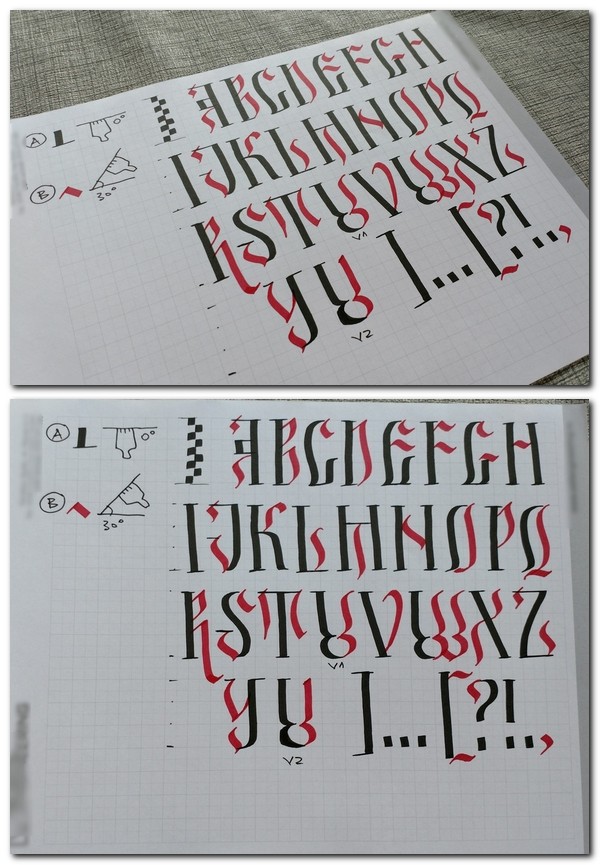 A 0°
ABCDEFGH
B 30°
IJKLMNOPQ
RSTUVWXZ
V1
YU ]...[?!..,
V2
A 0°
ABCDEFGH
B 30°
IJKLMNOPQ
RSTUVWXZ
V1
YU ]...[?!..,
V2